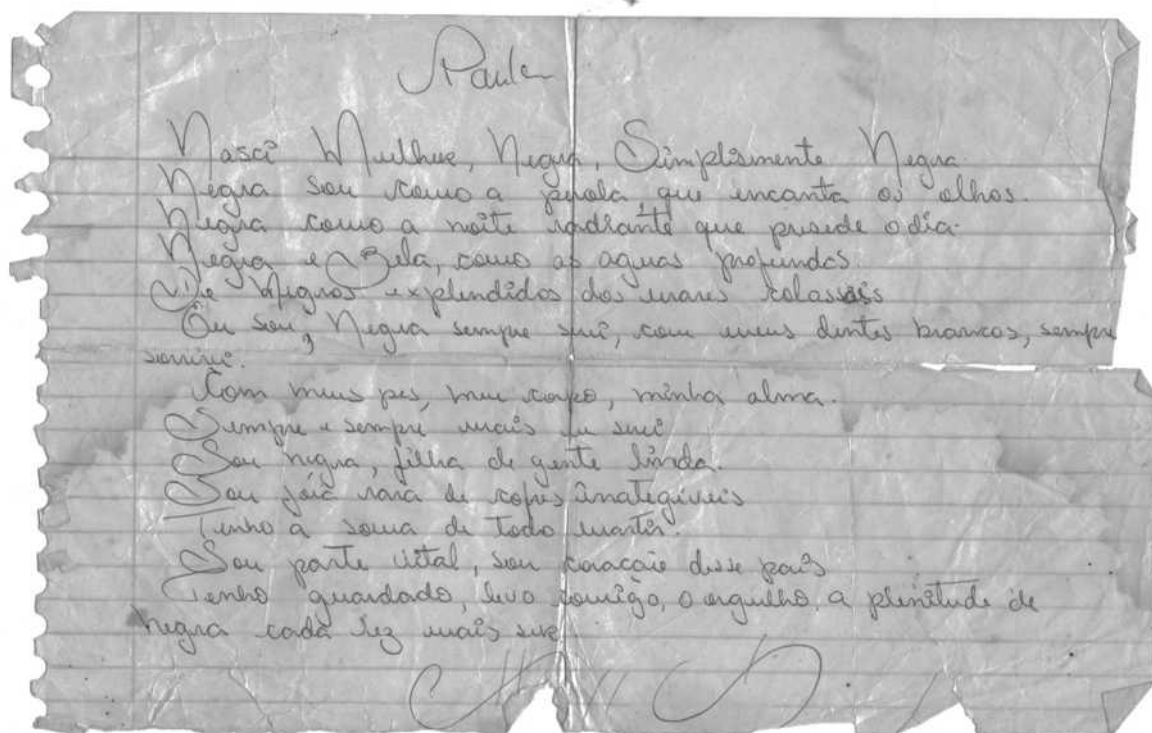 Paula
Nasci Mulher, Negra, Simplismente Negra
Negra sou como a perola, que encanta os olhos.
Negra como a noite radiante que precede o dia.
Negra e Bela, como as aguas profundas.
De Negros explendidos dos mares colassais
Eu sou, Negra sempre serei, com meus dentes brancos, sempre
sorrirei.
Com meus pes, meu corpo, minha alma.
Sempre e sempre mais eu serei
Sou negra, filha de gente linda.
Sou jóia rara de cofres inategiveis
Tenho a soma de todo martir.
Sou parte vital, sou coração desse país
Tenho guardado, levo comigo, o orgulho a plenitude de
negra cada vez mais ser